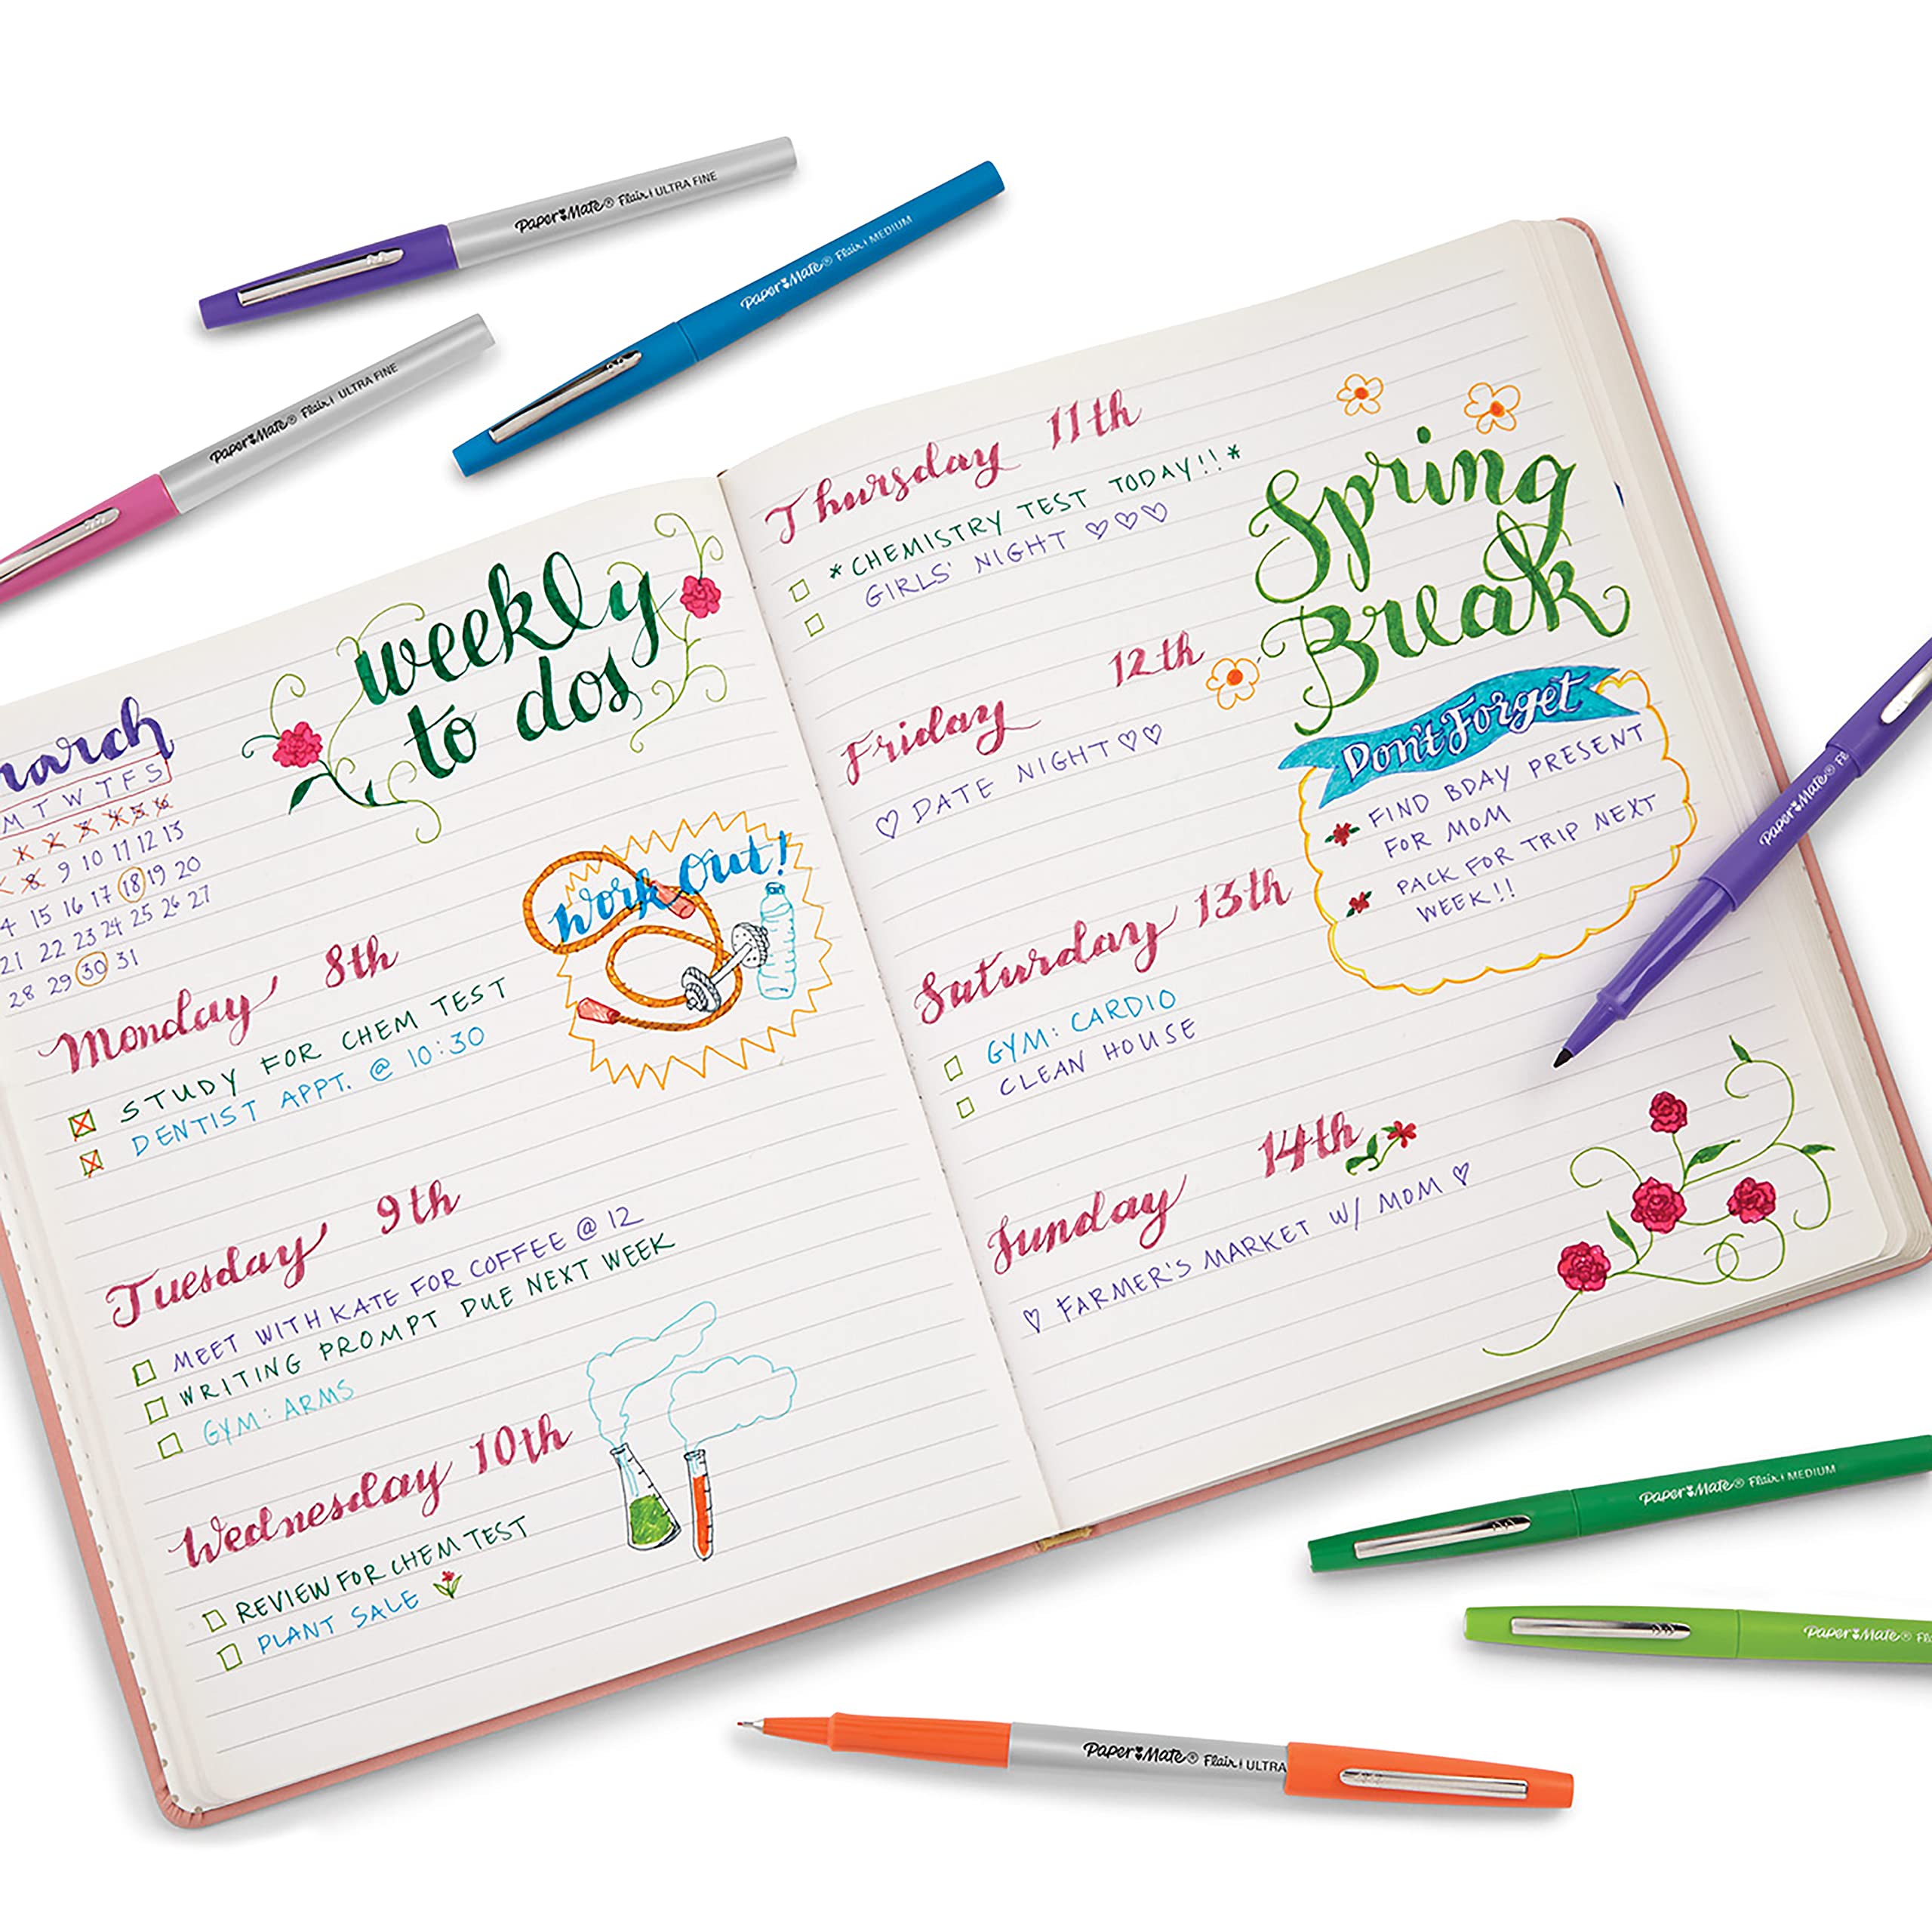 Paper Mate® Flair | ULTRA FINE
Paper Mate® Flair | MEDIUM
Paper Mate® Flair | ULTRA FINE
weekly
to dos
march
M T W T F S
8 9 10 11 12 13
15 16 17 18 19 20
21 22 23 24 25 26 27
28 29 30 31
Work Out!
Monday 8th
STUDY FOR CHEM TEST
DENTIST APPT. @ 10:30
Tuesday 9th
MEET WITH KATE FOR COFFEE @ 12
WRITING PROMPT DUE NEXT WEEK
GYM: ARMS
Wednesday 10th
REVIEW FOR CHEM TEST
PLANT SALE
Thursday 11th
*CHEMISTRY TEST TODAY!!*
GIRLS' NIGHT ♡♡♡
Friday 12th
♡ DATE NIGHT ♡♡
Saturday 13th
GYM: CARDIO
CLEAN HOUSE
Sunday 14th
♡ FARMER'S MARKET W/ MOM ♡
Spring
Break
Don't Forget
FIND BDAY PRESENT
FOR MOM
PACK FOR TRIP NEXT
WEEK!!
Paper Mate®
Paper Mate® Flair | MEDIUM
Paper Mate®
Paper Mate® Flair | ULTRA